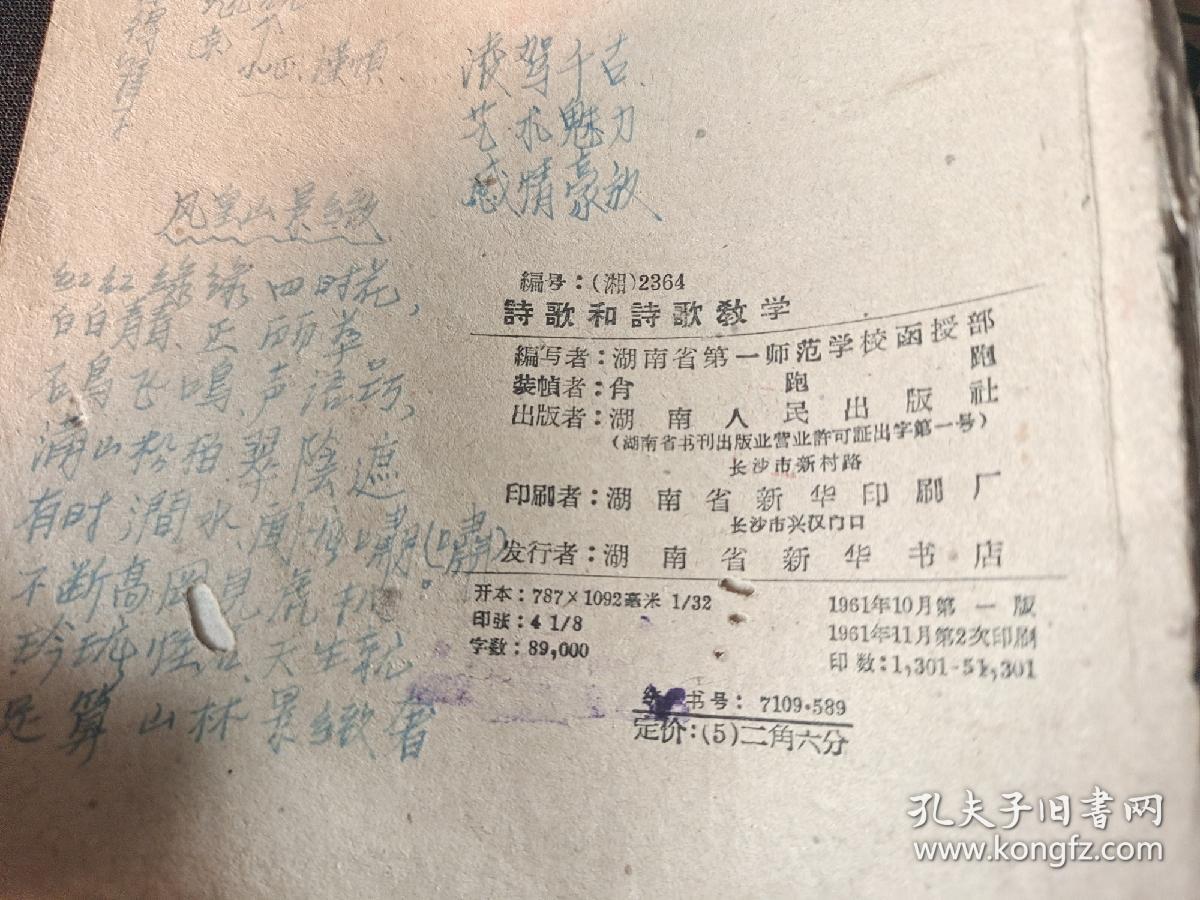 凌驾千古
艺术魅力
感情豪放
凤皇山景緻
红红绿绿四时花,
白白青青正丽华
鸟飞鸣声
满山松柏翠陰遮
有时澗水闻
不断高岡見虎
玲珑怪石天生就
足算山林景緻奢
編号:(湘)2364
詩歌和詩歌教学
編写者:湖南省第一师范学校函授部
装幀者:肖跑跑
出版者:湖南人民出版社
(湖南省书刊出版业营业許可証出字第一号)
长沙市新村路
印刷者:湖南省新华印刷厂
长沙市兴汉门口
发行者:湖南省新华书店
开本:787×1092毫米 1/32
印张:4 1/8
字数:89,000
1961年10月第一版
1961年11月第2次印刷
印数:1,301-51,301
书号:7109·589
定价:(5)二角六分
孔夫子旧书网
www.kongfz.com